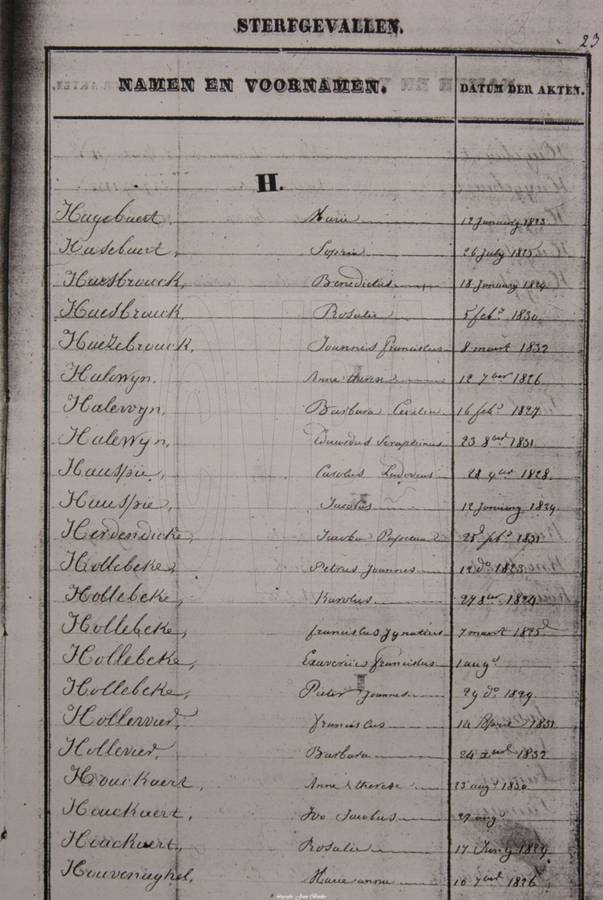 STERFGEVALLEN.
23
NAMEN EN VOORNAMEN. DATUM DER AKTEN.
H.
Hugebaert, Marie 12 January 1823
Husebaert, Sophie 26 July 1825
Haesbrouck, Benedictus 18 January 1829
Haesbrouck, Rosalie 5 feb.º 1830
Haezebrouck, Joannes franciscus 8 maart 1832
Halewyn, Anne therese 12 7ber 1826
Halewyn, Barbara Cecilia 16 feb.º 1827
Halewyn, Eduardus Seraphinus 23 8ber 1831
Hauspie, Carolus Ludovicus 28 9ber 1828
Hauspie, Jacobus 12 January 1829
Herdendicke, 1831
Hollebeke, Petrus Joannes 12 dº 1823
Hollebeke, Karolus 27 8ber 1824
Hollebeke, franciscus Ignatius 7 maart 1825
Hollebeke, Exaverius franciscus 1 augt
Hollebeke, Pieter Joannes 29 dº 1829
Hollevier, franciscus 14 April 1831
Hollevier, Barbara 24 1832
Houckaert, Anne therese 23 augt 1830
Houckaert, Ivo Jacobus 27 augt
Houckaert, Rosalie 17 Juny 1829
Houvenaghel, Marie anna 10 7ber 1826